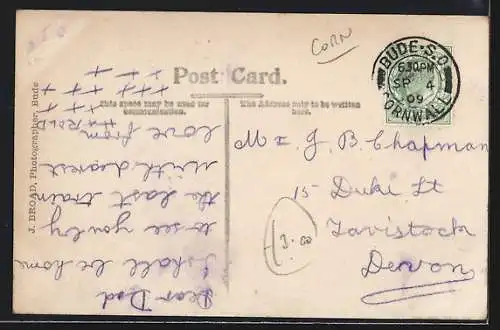 CORN
Post Card.
This space may be used for
communication.
The Address only to be written
here.
BUDE·S.O
6.30PM
SP 4
09
CORNWALL
J. BROAD, Photographer, Bude
Dear Dad
I shall be home
to see you by
the last train
With dearest
love from
HAROLD
+ + + +
+ + + +
+ + +
Mr J. B. Chapman
15 Duke St
Tavistock
Devon
13.00